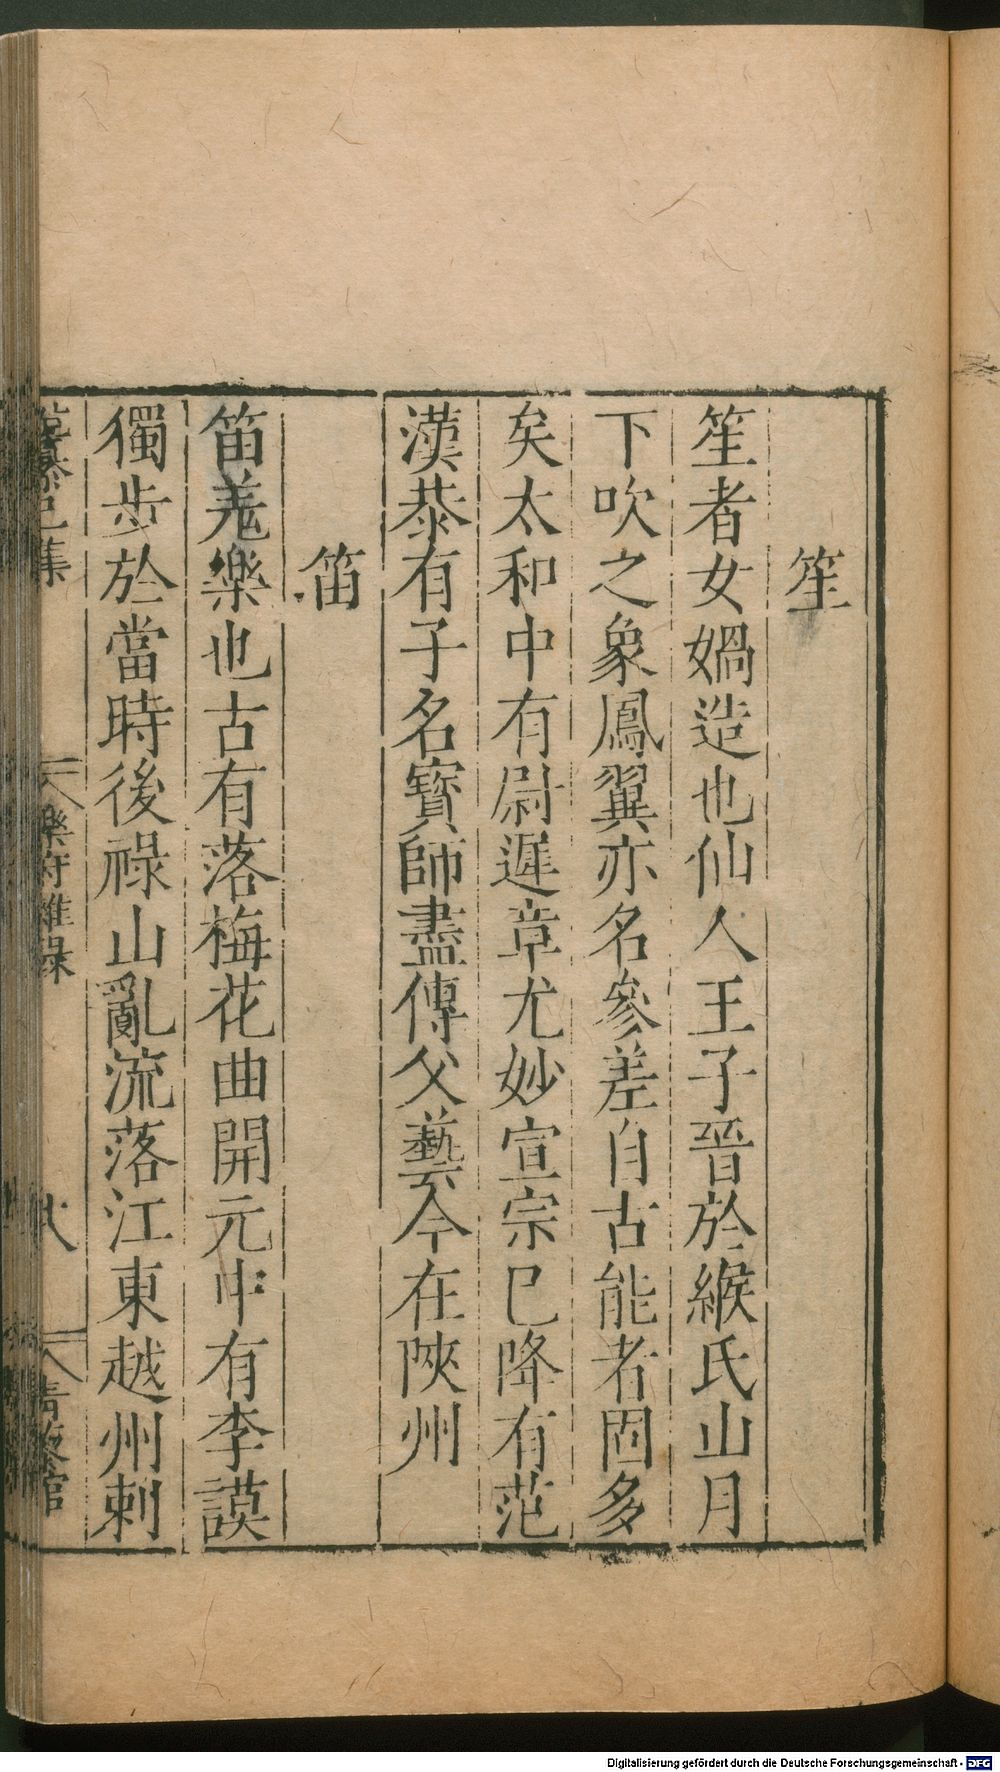 笙
笙者女媧造也仙人王子晉於緱氏山月
下吹之象鳳翼亦名參差自古能者固多
矣太和中有尉遲章尤妙宣宗已降有范
漢恭有子名寳師盡傳父藝今在陜州
笛
笛羗樂也古有落梅花曲開元中有李謨
獨步於當時後祿山亂流落江東越州刺
集
樂府雜錄
Digitalisierung gefördert durch die Deutsche Forschungsgemeinschaft - DFG